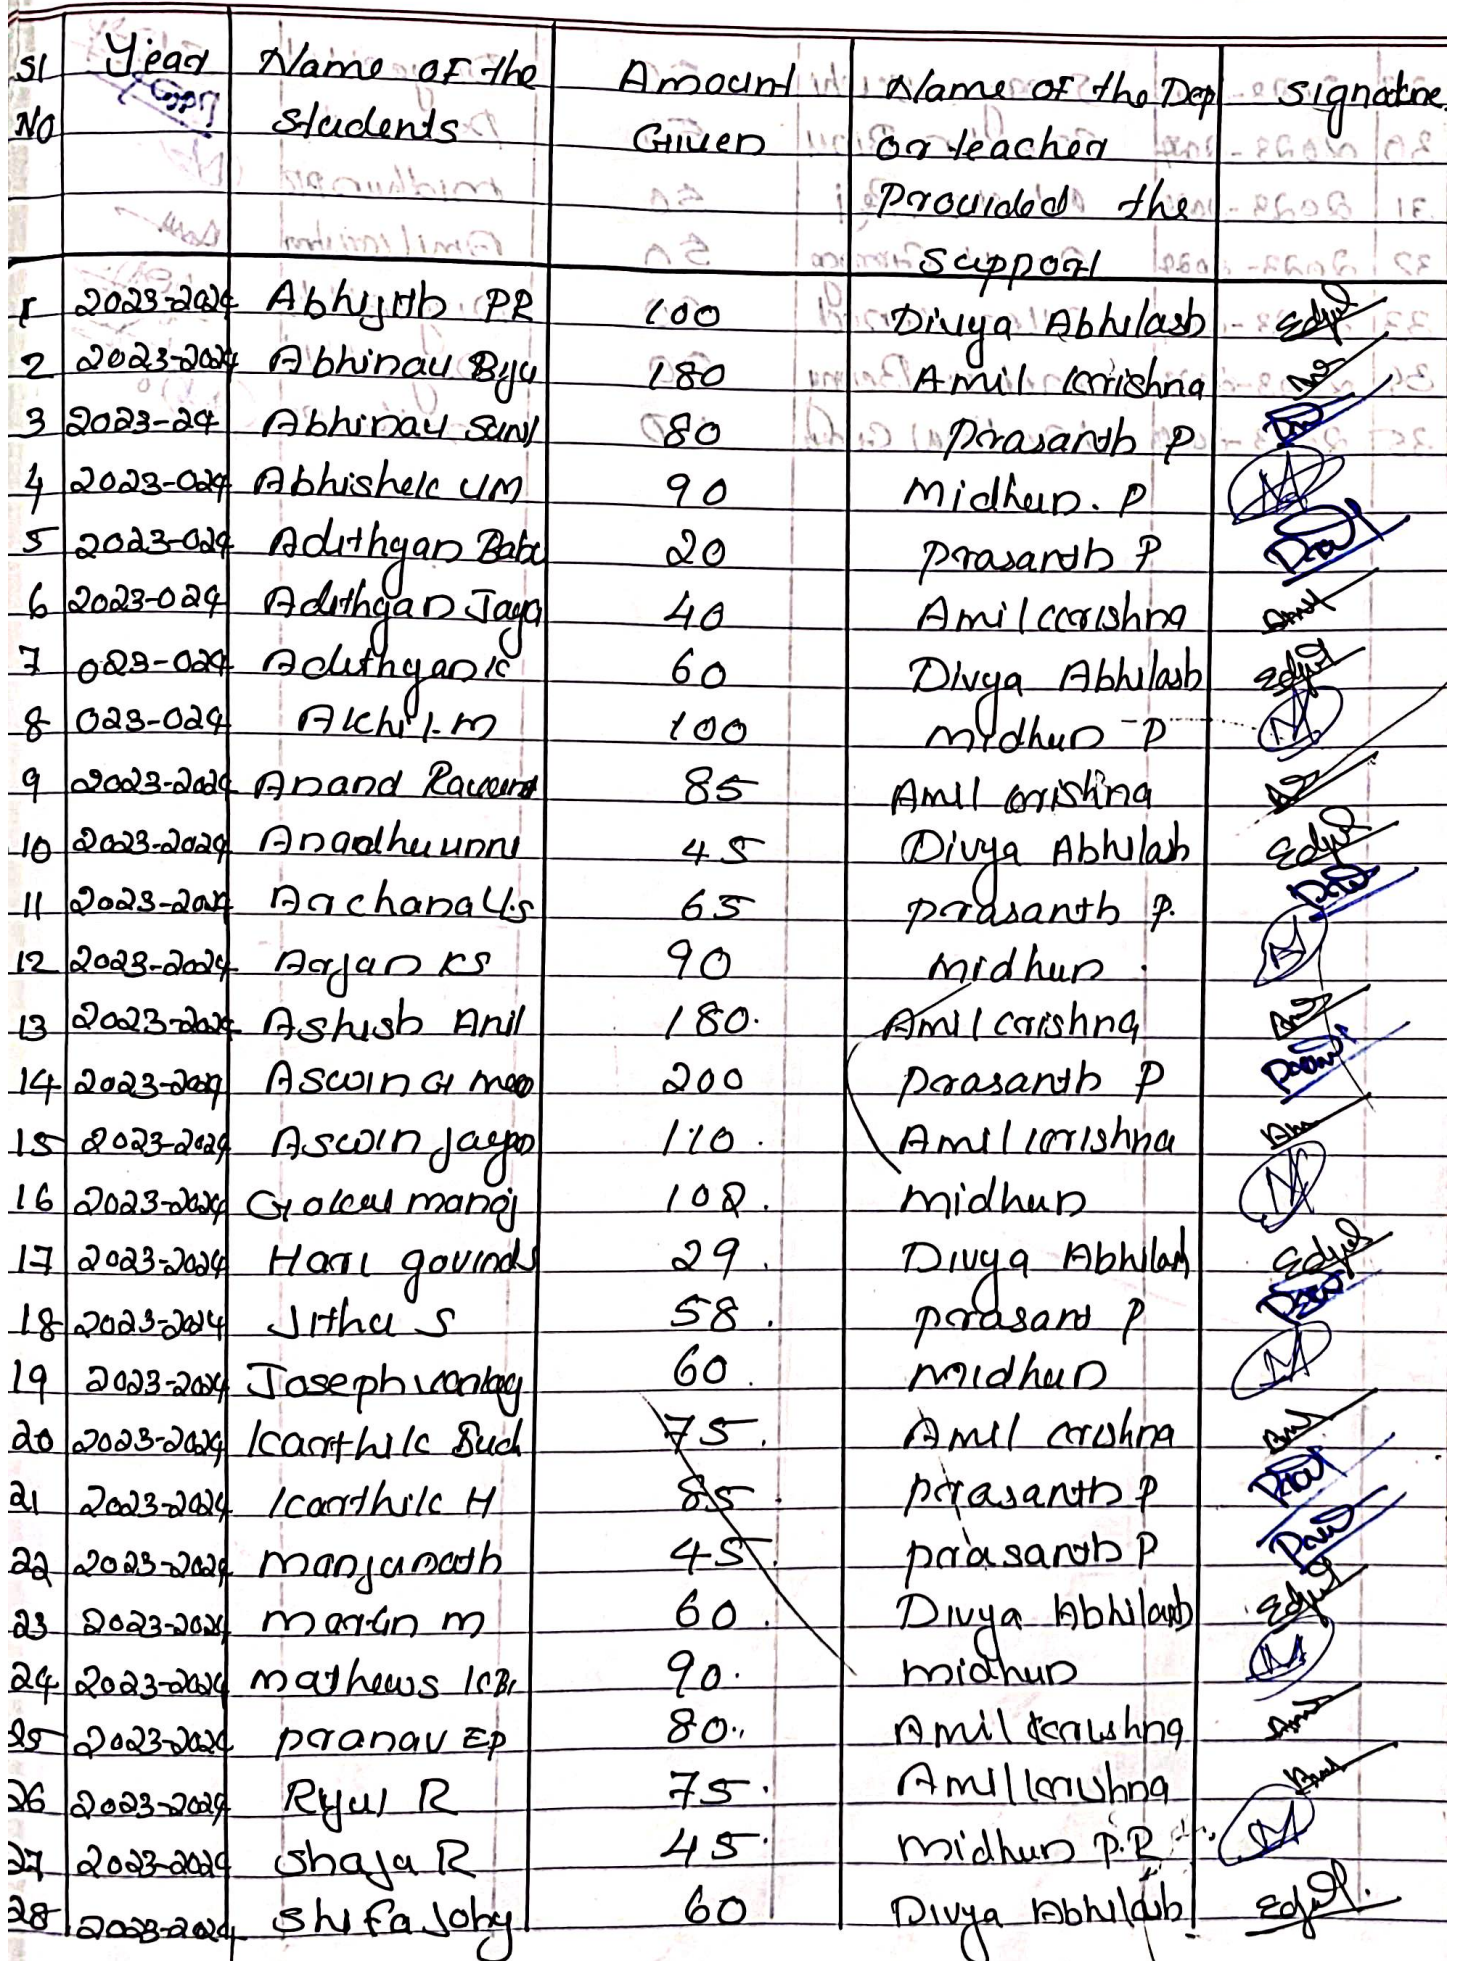 Sl Year Name of the Amount Name of the Dep Signature
No Students Given or teacher
Provided the
Support
1 2023-2024 Abhijith PR 100 Divya Abhilash
2 2023-2024 Abhinav Biju 180 Amil Krishna
3 2023-24 Abhinav Sunil 80 Prasanth P
4 2023-024 Abhishek VM 90 Midhun. P
5 2023-024 Adithyan Babu 20 Prasanth P
6 2023-024 Adithyan Jaya 40 Amil Krishna
7 023-024 Adithyan K 60 Divya Abhilash
8 023-024 Akhil.M 100 Midhun P
9 2023-2024 Anand 85 Amil Krishna
10 2023-2024 Anadhuunni 45 Divya Abhilash
11 2023-2024 Archana V.S 65 Prasanth P.
12 2023-2024 Arjan KS 90 Midhun
13 2023-2024 Ashish Anil 180. Amil Krishna
14 2023-2024 Aswin G 200 Prasanth P
15 2023-2024 Aswin 110. Amil Krishna
16 2023-2024 Gokul manoj 102. Midhun
17 2023-2024 Hari govind 29. Divya Abhilash
18 2023-2024 Jithu S 58. Prasant P
19 2023-2024 Joseph 60. Midhun
20 2023-2024 Karthik 75. Amil Krishna
21 2023-2024 Karthik H 85. Prasanth P
22 2023-2024 Manjunath 45. Prasanth P
23 2023-2024 Martin M 60. Divya Abhilash
24 2023-2024 Mathews 90. Midhun
25 2023-2024 Pranav EP 80.. Amil Krishna
26 2023-2024 R 75. Amil Krishna
27 2023-2024 Shaja R 45. Midhun P.R
28 2023-2024 Shifa Joby 60 Divya Abhilash